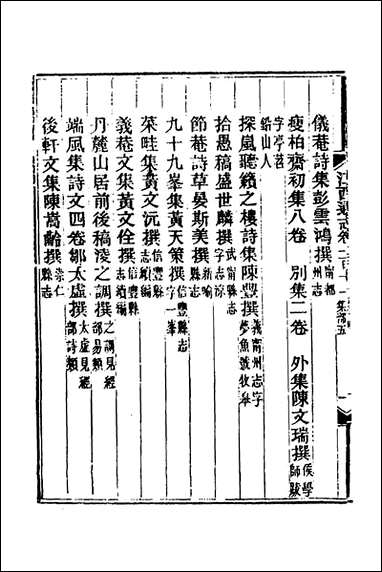 儀菴詩集彭雲鴻撰寧都州志
瘦柏齋初集八卷 別集二卷 外集陳文瑞撰侯學師跋
字亭若
鉛山人
探嵐聽籟之樓詩集陳豐撰義甯州志字夢魚號牧牟
拾愚稿盛世麟撰武甯縣志字志源
節菴詩草晏斯美撰新喻縣志
九十九峯集黃天策撰信豐縣志字一峯
菜畦集黃文沅撰信豐縣志續編
義菴文集黃文佺撰信豐縣志續編
丹麓山居前後稿淩之調撰之調見經部易類
端風集詩文四卷鄒太虛撰太虛見經部詩類
後軒文集陳嵩齡撰崇仁縣志